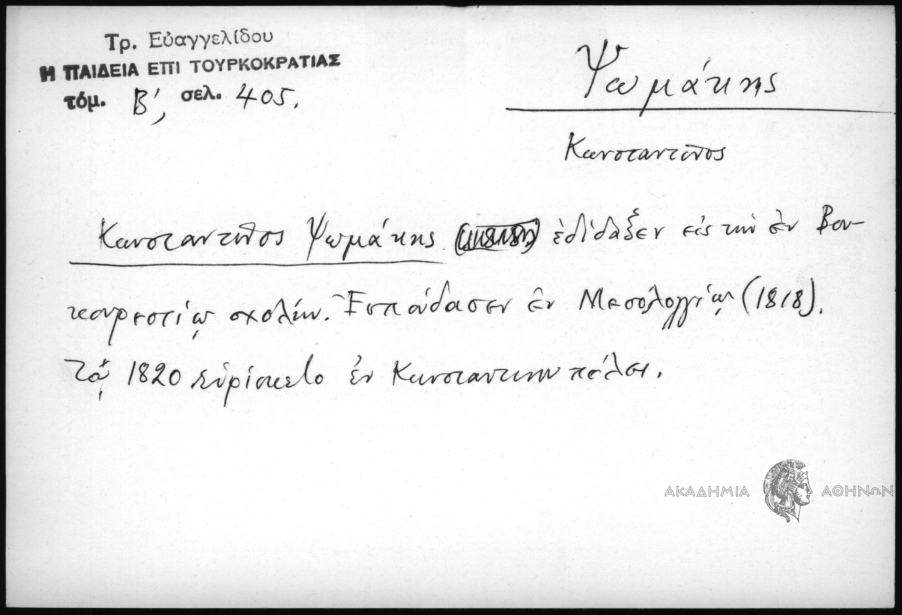 Τρ. Εὐαγγελίδου
Η ΠΑΙΔΕΙΑ ΕΠΙ ΤΟΥΡΚΟΚΡΑΤΙΑΣ
τόμ. Β΄, σελ. 405.
Ψωμάκης
Κωνσταντῖνος
Κωνσταντῖνος Ψωμάκης ἐδίδαξεν εἰς τὴν ἐν Βου-
κουρεστίῳ σχολήν. Ἐσπούδασεν ἐν Μεσολογγίῳ (1818).
Τῷ 1820 εὑρίσκετο ἐν Κωνσταντινουπόλει.
ΑΚΑΔΗΜΙΑ ΑΘΗΝΩΝ